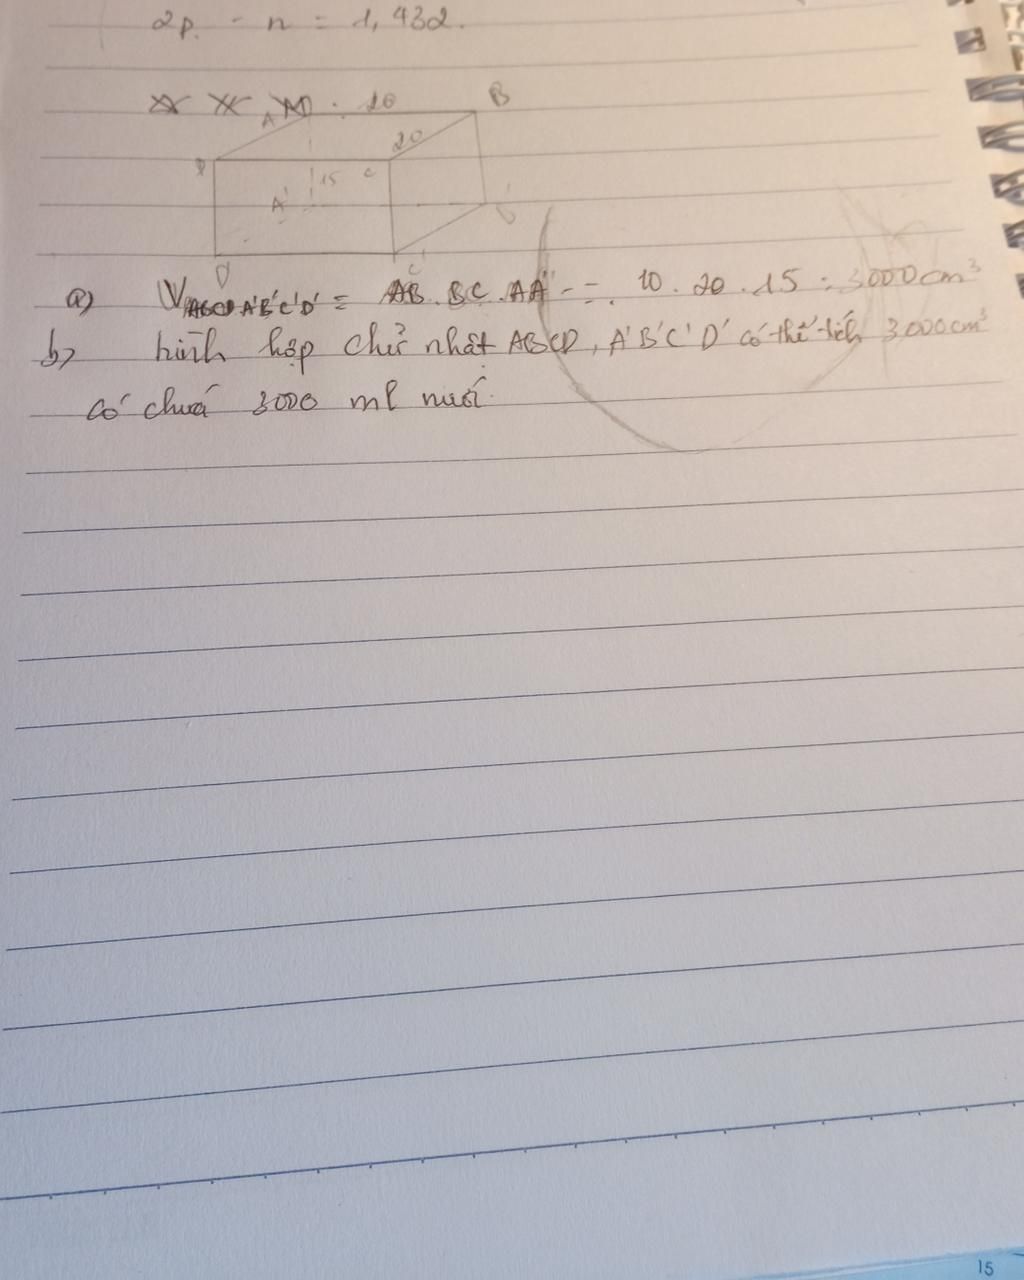 2p. - n = 1,432.
A . 10 B
20
D 15 C
A'
D' C'
a) VABCD A'B'C'D' = AB . BC . AA' = . 10 . 20 . 15 = 3000 cm³
b) hình hộp chữ nhật ABCD, A'B'C'D' có thể tích 3000cm³
có chứa 3000 ml nước.
15